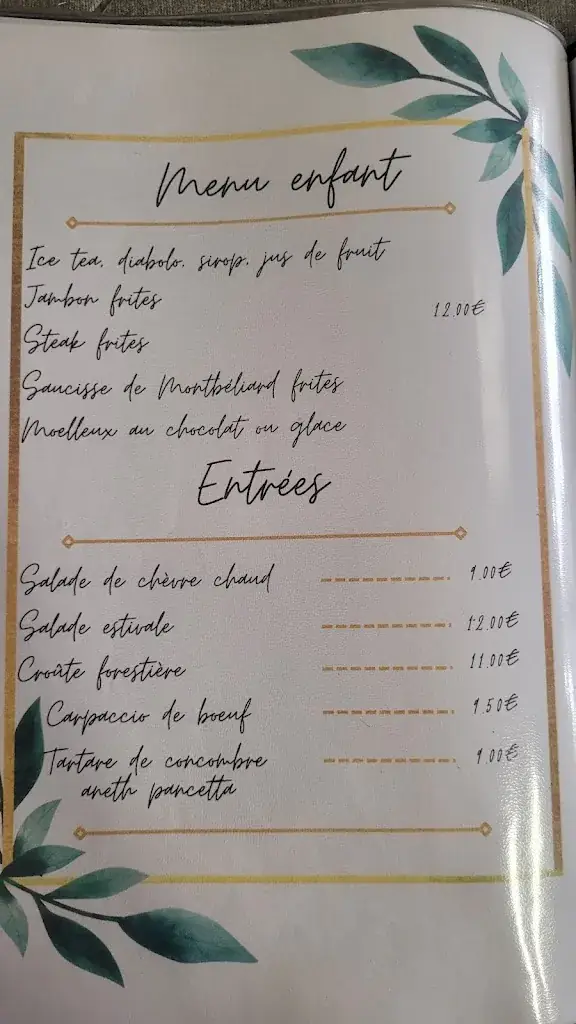 Menu enfant
Ice tea, diabolo, sirop, jus de fruit
Jambon frites 12.00€
Steak frites
Saucisse de Montbéliard frites
Moelleux au chocolat ou glace
Entrées
Salade de chèvre chaud 9.00€
Salade estivale 12.00€
Croûte forestière 11.00€
Carpaccio de boeuf 9.50€
Tartare de concombre 9.00€
aneth pancetta